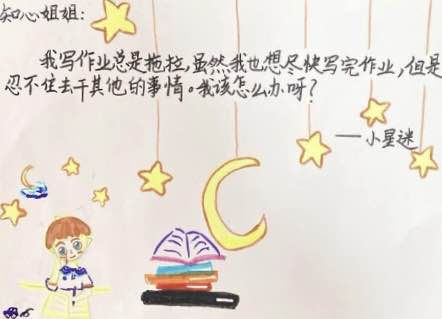 知心姐姐:
我写作业总是拖拉,虽然我也想尽快写完作业,但是
忍不住去干其他的事情。我该怎么办呀?
——小星迷